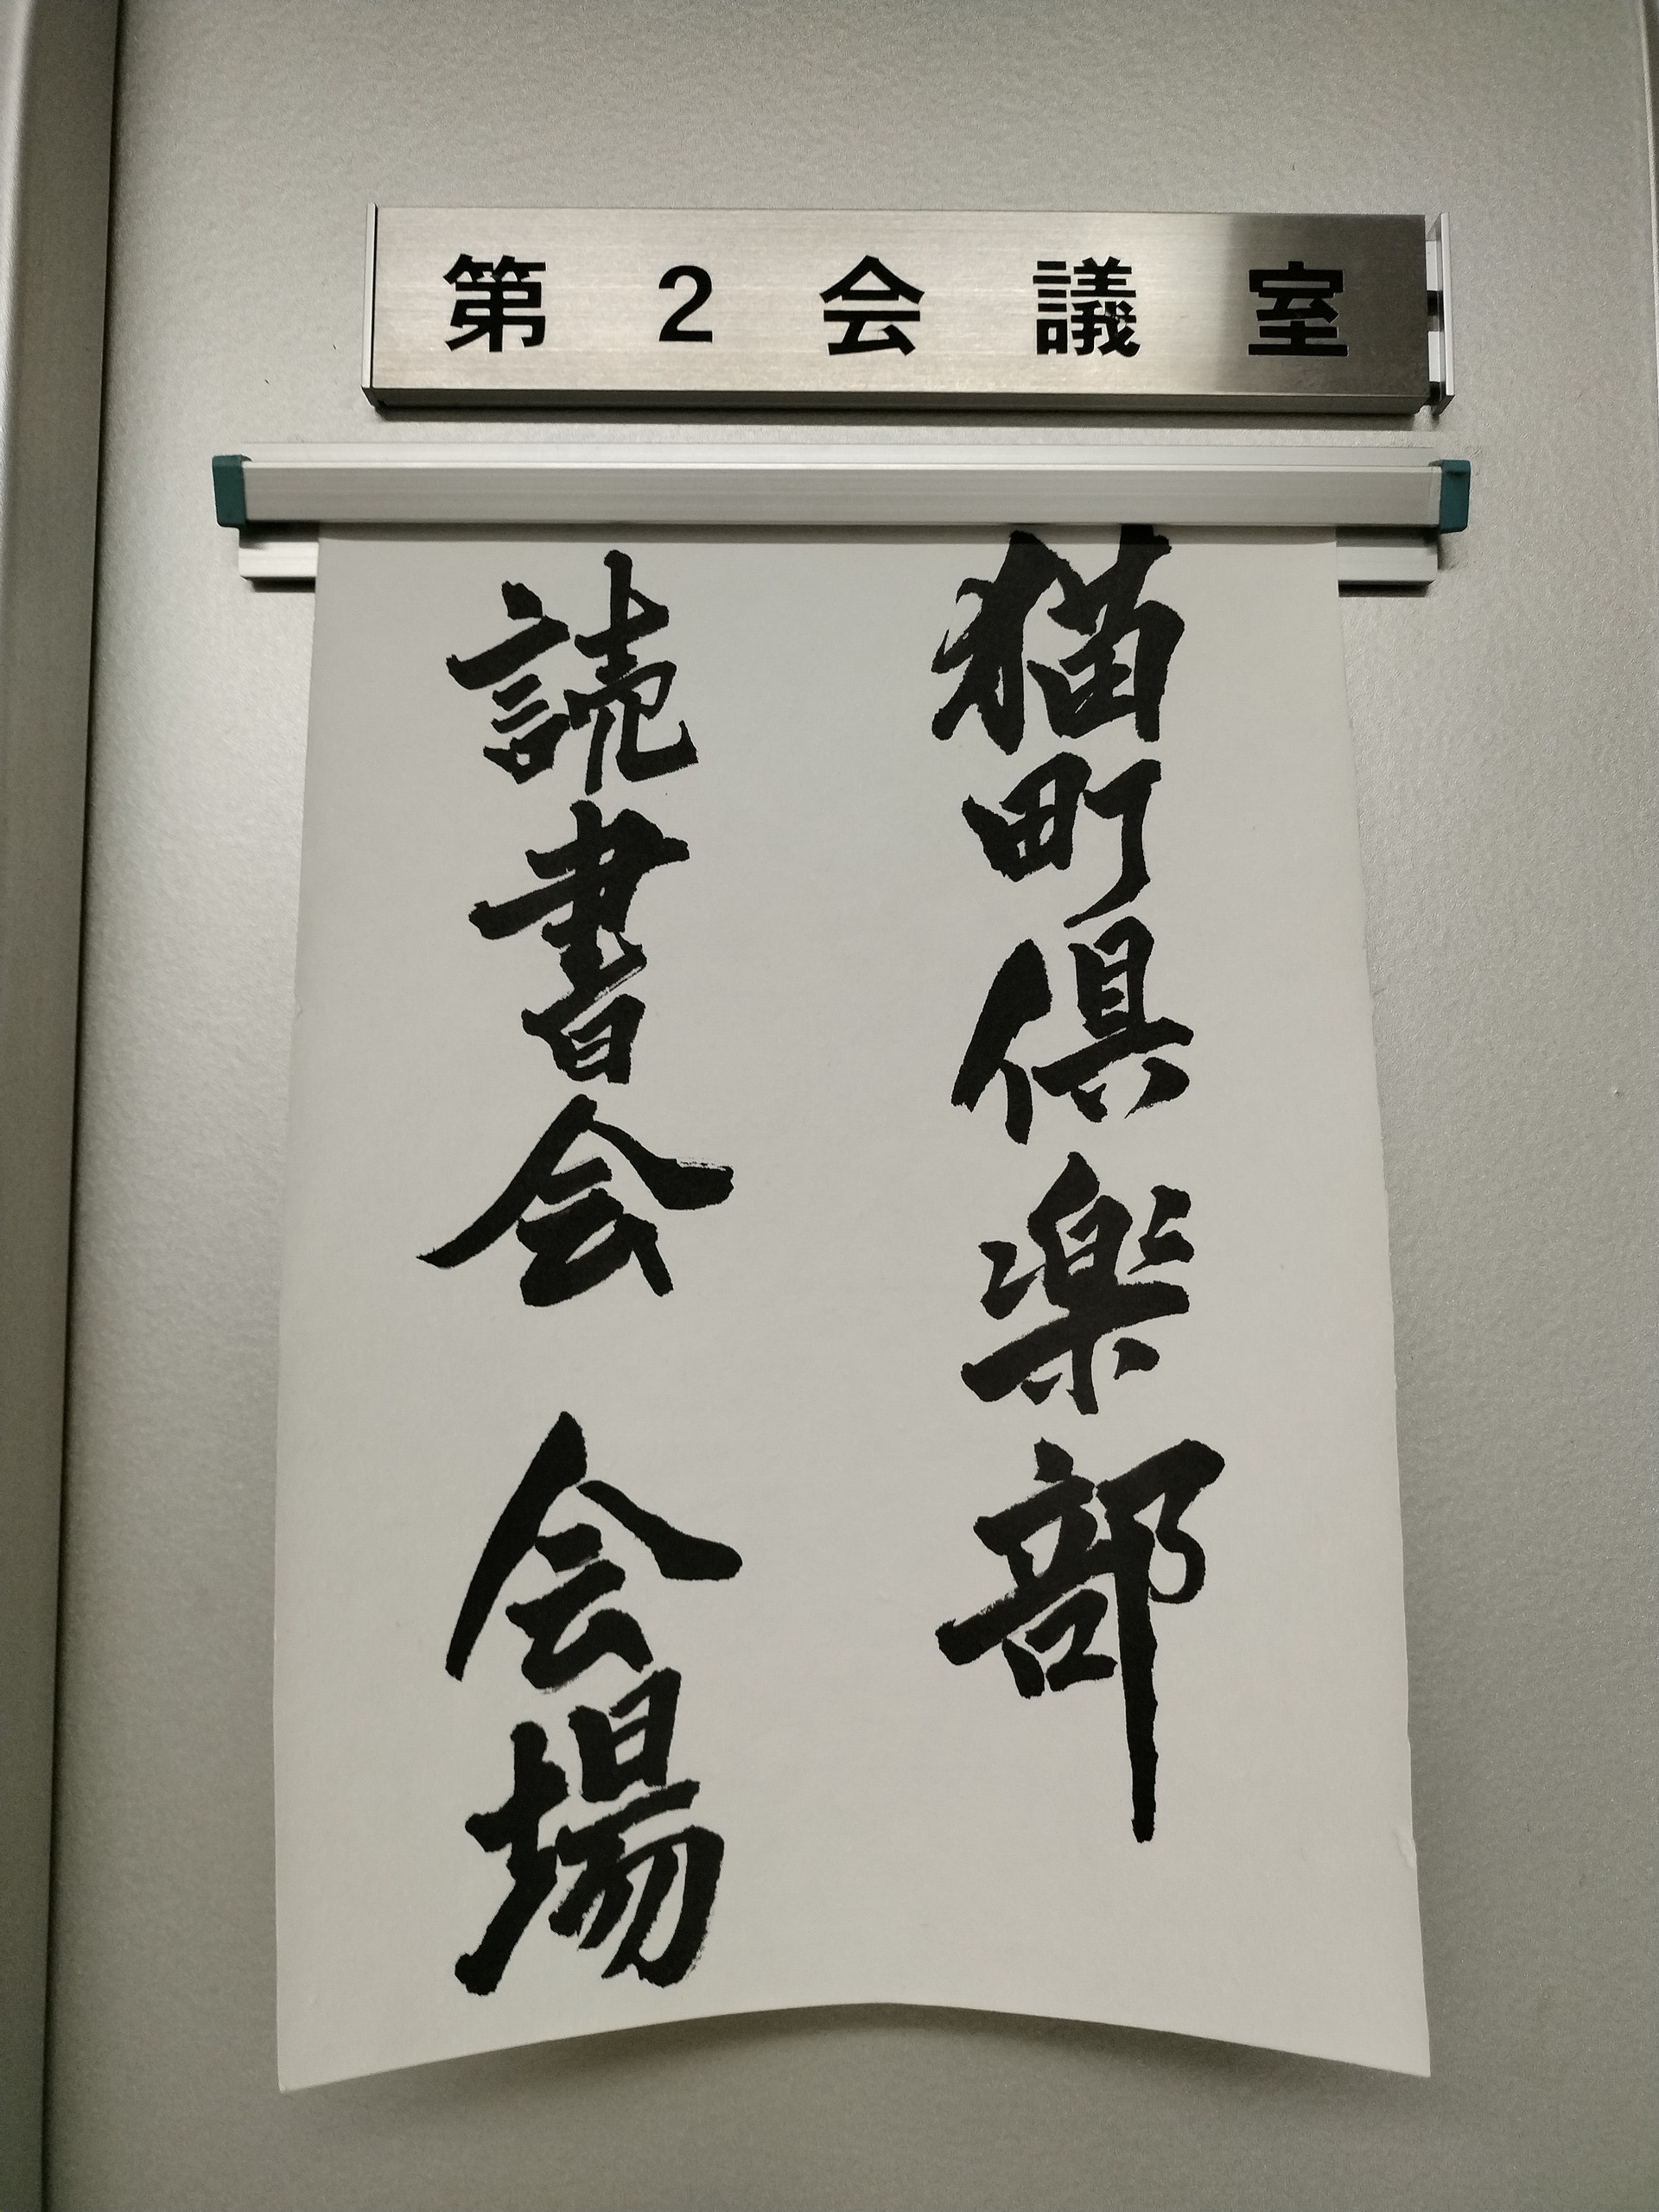 第2会議室
猫町倶楽部
読書会 会場